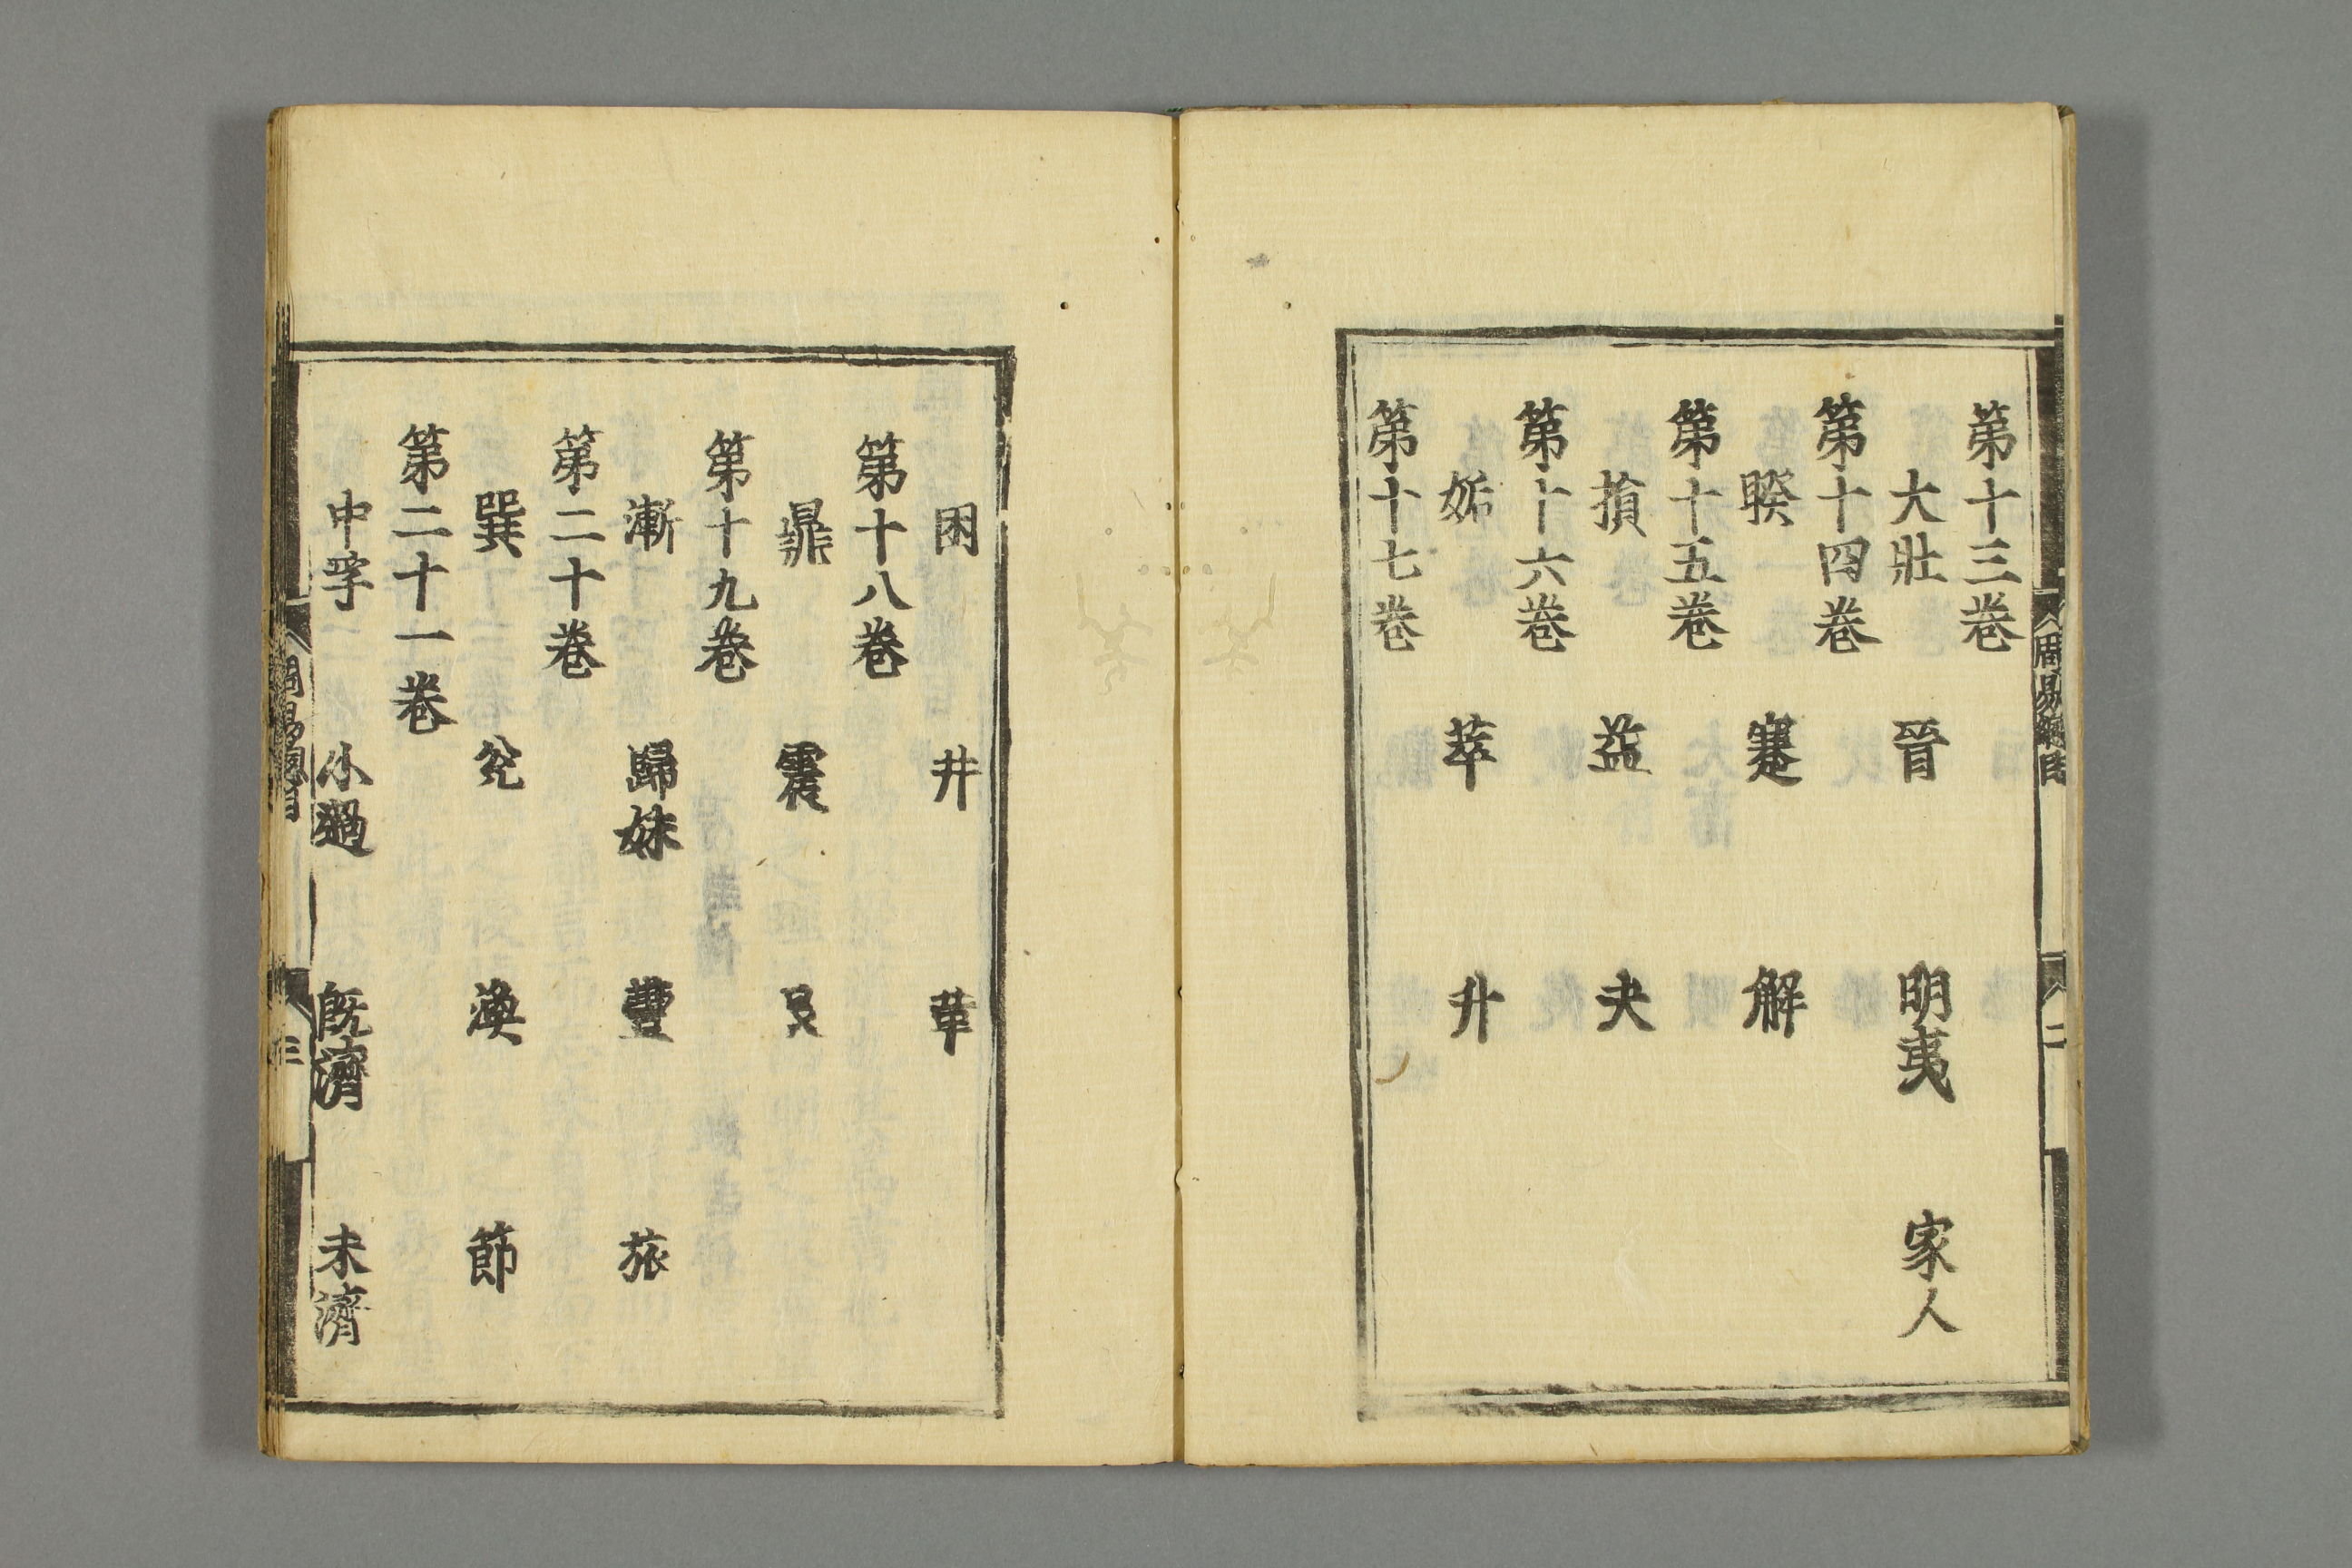 周易總目
二
第十三巻
大壯 晉 明夷 家人
第十四巻
睽 蹇 解
第十五巻
損 益 夬
第十六巻
姤 萃 升
第十七巻
困 井 革
第十八巻
鼎 震 艮
第十九巻
漸 歸妹 豐 旅
第二十巻
巽 兌 渙 節
第二十一巻
中孚 小過 既濟 未濟
周易總目
三